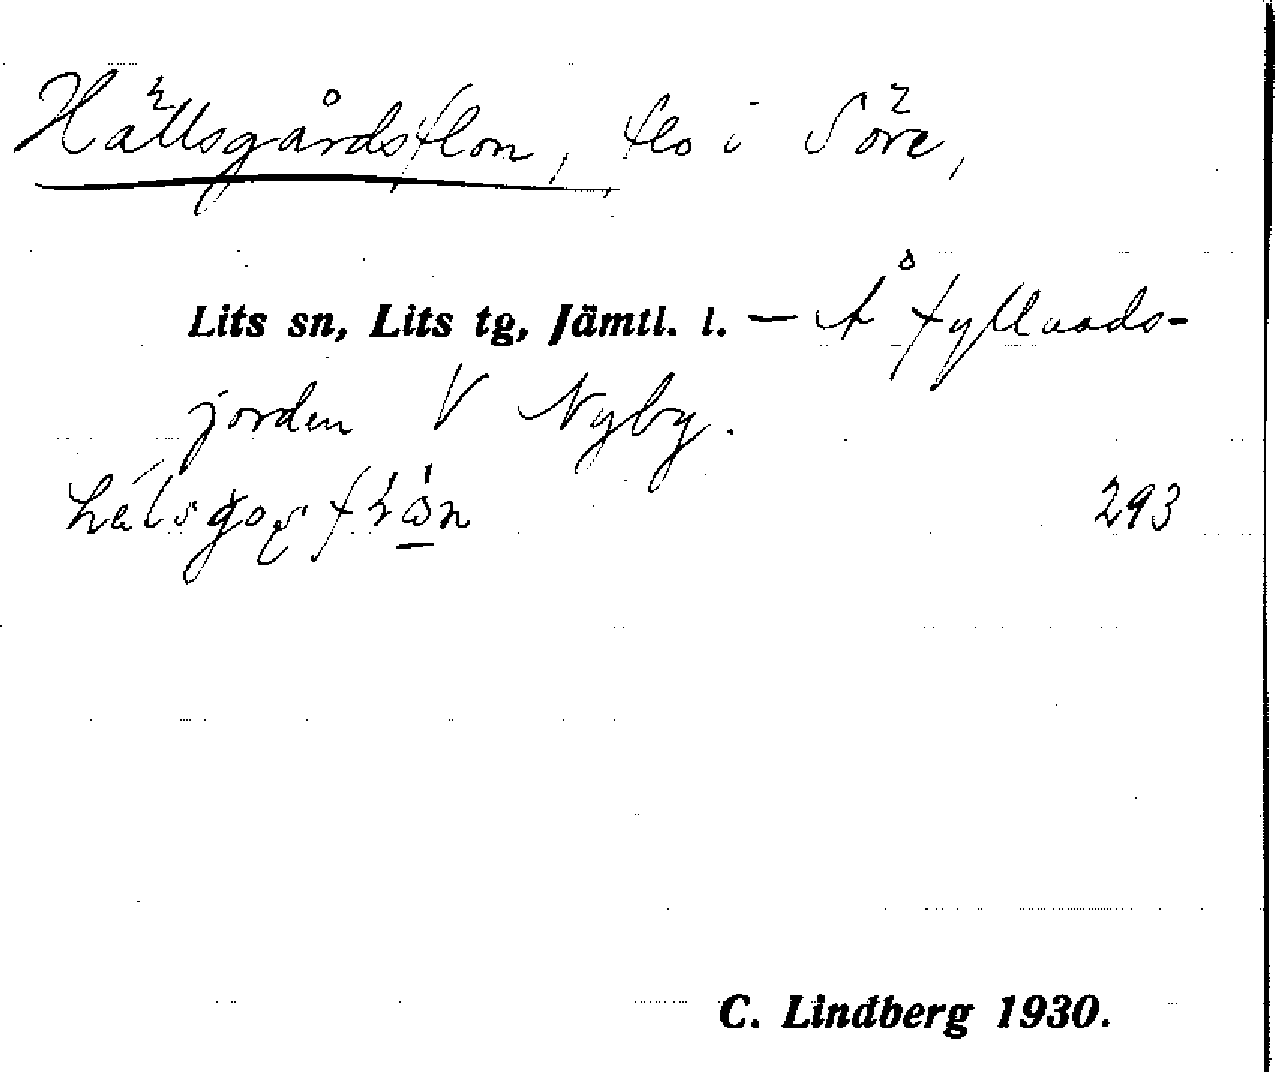 Hällsgårdsflon, flo i Söre,
Lits sn, Lits tg, Jämtl. l. — Å fyllnads-
jorden V Nyby.
293
C. Lindberg 1930.